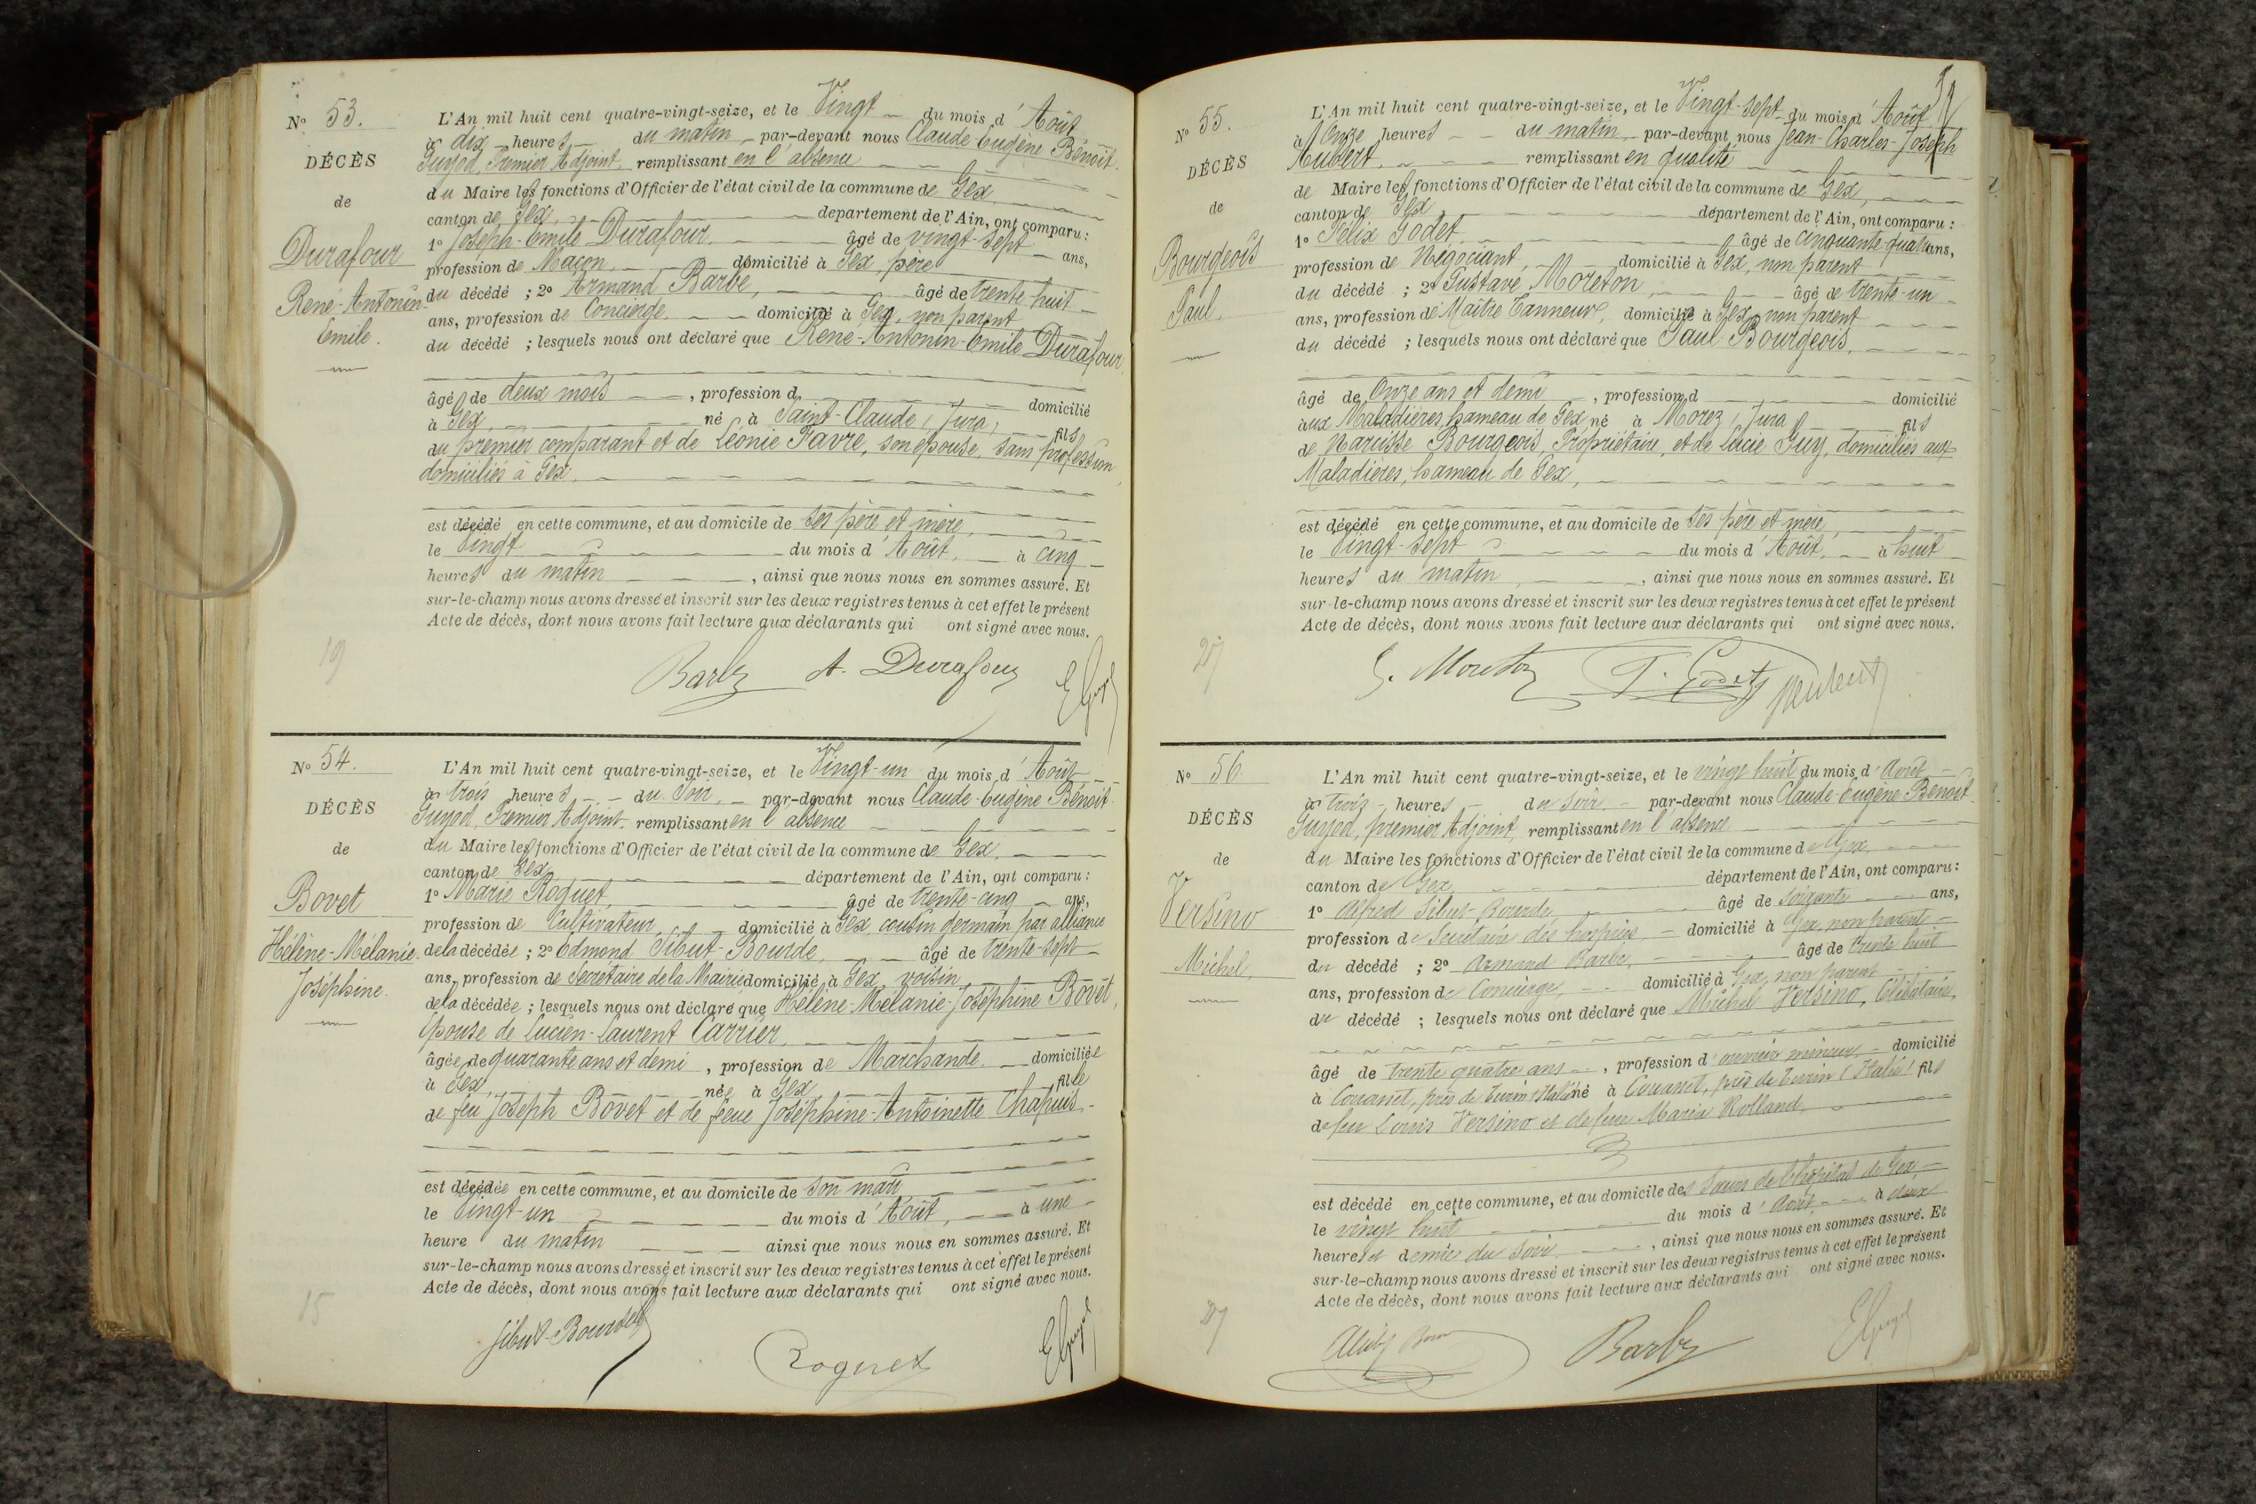 N° 53.
DÉCÈS
de
Durafour
René-Antonin-
Emile.
L'An mil huit cent quatre-vingt-seize, et le Vingt du mois d'Août
à dix heures du matin par-devant nous Claude-Eugène Benoit
Guyod, Premier Adjoint, remplissant en l'absence
du Maire les fonctions d'Officier de l'état civil de la commune de Gex,
canton de Gex, département de l'Ain, ont comparu :
1° Joseph-Emile Durafour, âgé de vingt-sept ans,
profession de Maçon, domicilié à Gex, père
du décédé ; 2° Armand Barbe, âgé de trente-huit
ans, profession de Concierge domicilié à Gex, non parent
du décédé ; lesquels nous ont déclaré que René-Antonin-Emile Durafour,
âgé de deux mois , profession d domicilié
à Gex, né à Saint-Claude (Jura) fils
du premier comparant et de Léonie Favre, son épouse, sans profession,
domiciliés à Gex.
est décédé en cette commune, et au domicile de ses père et mère,
le Vingt du mois d'Août, à cinq
heures du matin , ainsi que nous nous en sommes assuré. Et
sur-le-champ nous avons dressé et inscrit sur les deux registres tenus à cet effet le présent
Acte de décès, dont nous avons fait lecture aux déclarants qui ont signé avec nous.
19
Barbe A. Durafour E Guyod
N° 54.
DÉCÈS
de
Bovet
Hélène-Mélanie-
Joséphine.
L'An mil huit cent quatre-vingt-seize, et le Vingt-un du mois d'Août
à trois heures du Soir, par-devant nous Claude-Eugène Benoit
Guyod, Premier Adjoint, remplissant en l'absence
du Maire les fonctions d'Officier de l'état civil de la commune de Gex,
canton de Gex département de l'Ain, ont comparu :
1° Marie Roquet, âgé de trente-cinq ans,
profession de Cultivateur, domicilié à Gex, cousin germain par alliance
de la décédée ; 2° Edmond Sibut-Bourde, âgé de trente-sept
ans, profession de Secrétaire de la Mairie domicilié à Gex, voisin
de la décédée ; lesquels nous ont déclaré que Hélène-Mélanie-Joséphine Bovet,
épouse de Lucien-Laurent Carrier,
âgée de quarante ans et demi , profession de Marchande domiciliée
à Gex, née à Gex fille
de feu Joseph Bovet et de feue Joséphine-Antoinette Chapuis
est décédée en cette commune, et au domicile de son mari
le Vingt-un du mois d'Août, à une
heure du matin ainsi que nous nous en sommes assuré. Et
sur-le-champ nous avons dressé et inscrit sur les deux registres tenus à cet effet le présent
Acte de décès, dont nous avons fait lecture aux déclarants qui ont signé avec nous.
15
Sibut-Bourde Roquet E Guyod
N° 55.
DÉCÈS
de
Bourgeois
Paul.
L'An mil huit cent quatre-vingt-seize, et le Vingt-sept du mois d'Août
à Onze heures du matin par-devant nous Jean-Charles-Joseph
Aubert, remplissant en qualité
de Maire les fonctions d'Officier de l'état civil de la commune de Gex,
canton de Gex département de l'Ain, ont comparu :
1° Félix Godet, âgé de cinquante-quatre ans,
profession de Négociant, domicilié à Gex, non parent
du décédé ; 2° Gustave Moreton, âgé de trente-un
ans, profession de Maître Tanneur, domicilié à Gex, non parent
du décédé ; lesquels nous ont déclaré que Paul Bourgeois,
âgé de Onze ans et demi , profession d domicilié
aux Maladières, hameau de Gex, né à Morez (Jura) fils
de Narcisse Bourgeois, Propriétaire, et de Lucie Guy, domiciliés aux
Maladières, hameau de Gex,
est décédé en cette commune, et au domicile de ses père et mère,
le Vingt-sept du mois d'Août, à huit
heures du matin , ainsi que nous nous en sommes assuré. Et
sur-le-champ nous avons dressé et inscrit sur les deux registres tenus à cet effet le présent
Acte de décès, dont nous avons fait lecture aux déclarants qui ont signé avec nous.
27
G. Moreton F. Godet Aubert
N° 56
DÉCÈS
de
Versino
Michel
L'An mil huit cent quatre-vingt-seize, et le vingt huit du mois d'Août
à trois heures du soir par-devant nous Claude-Eugène Benoit
Guyod, premier Adjoint, remplissant en l'absence
du Maire les fonctions d'Officier de l'état civil de la commune de Gex
canton de Gex, département de l'Ain, ont comparu :
1° Alfred Sibut-Bourde, âgé de soixante ans,
profession de Secrétaire des hospices, domicilié à Gex, non parent
du décédé ; 2° Armand Barbe, âgé de trente huit
ans, profession de Concierge, domicilié à Gex, non parent
du décédé ; lesquels nous ont déclaré que Michel Versino, Célibataire,
âgé de trente quatre ans , profession d'ouvrier mineur, domicilié
à Couanet, près de Turin (Italie) né à Couanet, près de Turin (Italie) fils
de feu Louis Versino et de feue Maria Rolland
est décédé en cette commune, et au domicile des Sœurs de l'hôpital de Gex
le vingt huit du mois d'Août, à deux
heures et demie du soir , ainsi que nous nous en sommes assuré. Et
sur-le-champ nous avons dressé et inscrit sur les deux registres tenus à cet effet le présent
Acte de décès, dont nous avons fait lecture aux déclarants qui ont signé avec nous.
27
Barbe E Guyod